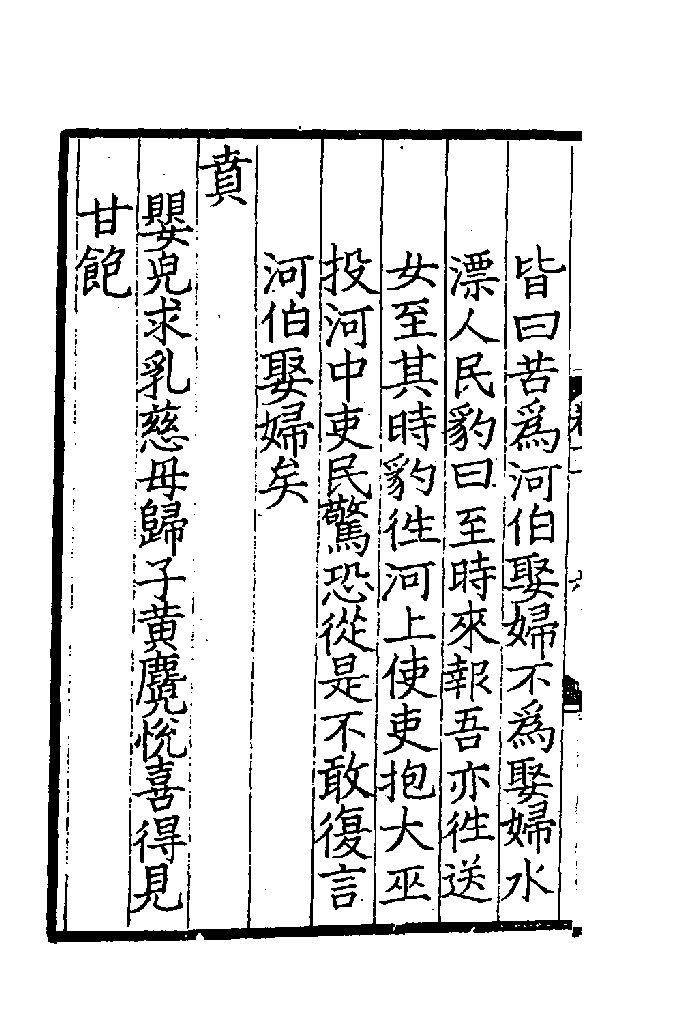 皆曰苦爲河伯娶婦不爲娶婦水
漂人民豹曰至時來報吾亦徃送
女至其時豹徃河上使吏抱大巫
投河中吏民驚恐從是不敢復言
河伯娶婦矣
賁
嬰兒求乳慈母歸子黄麑悅喜得見
甘飽